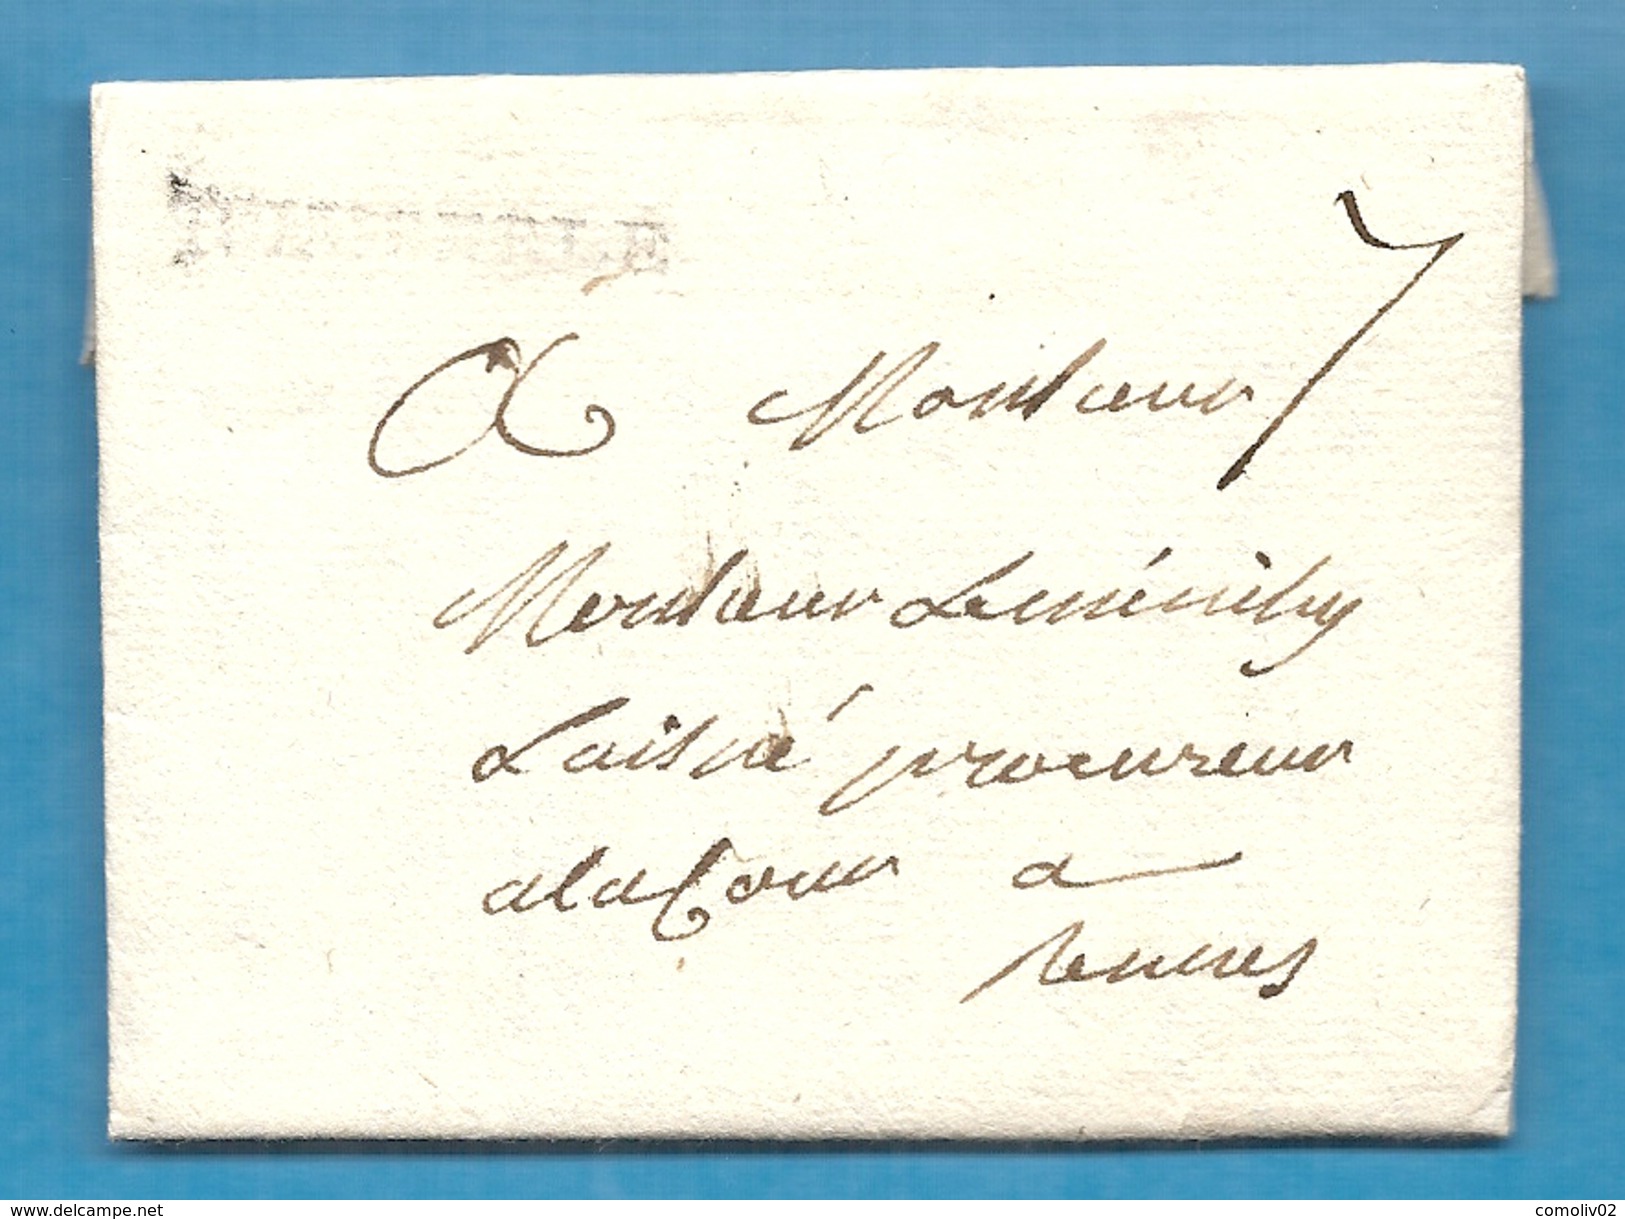 7
A Monsieur
Monsieur Leménihy
Laisné procureur
a la Cour a
Rennes
www.delcampe.net
comoliv02